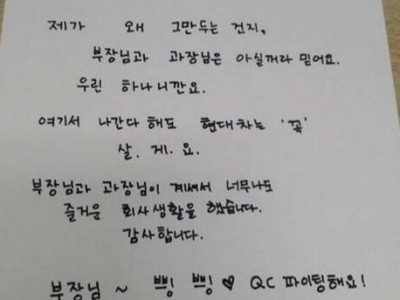 제가 왜 그만두는 건지,
부장님과 과장님은 아실꺼라 믿어요.
우린 하나니깐요.
여기서 나간다 해도 현대차는 '꼭'
살. 게. 요.
부장님과 과장님이 계셔서 너무나도
즐거운 회사생활을 했습니다.
감사합니다.
부장님 ~ 쁘잉 쁘잉 ♥ QC 파이팅해요!